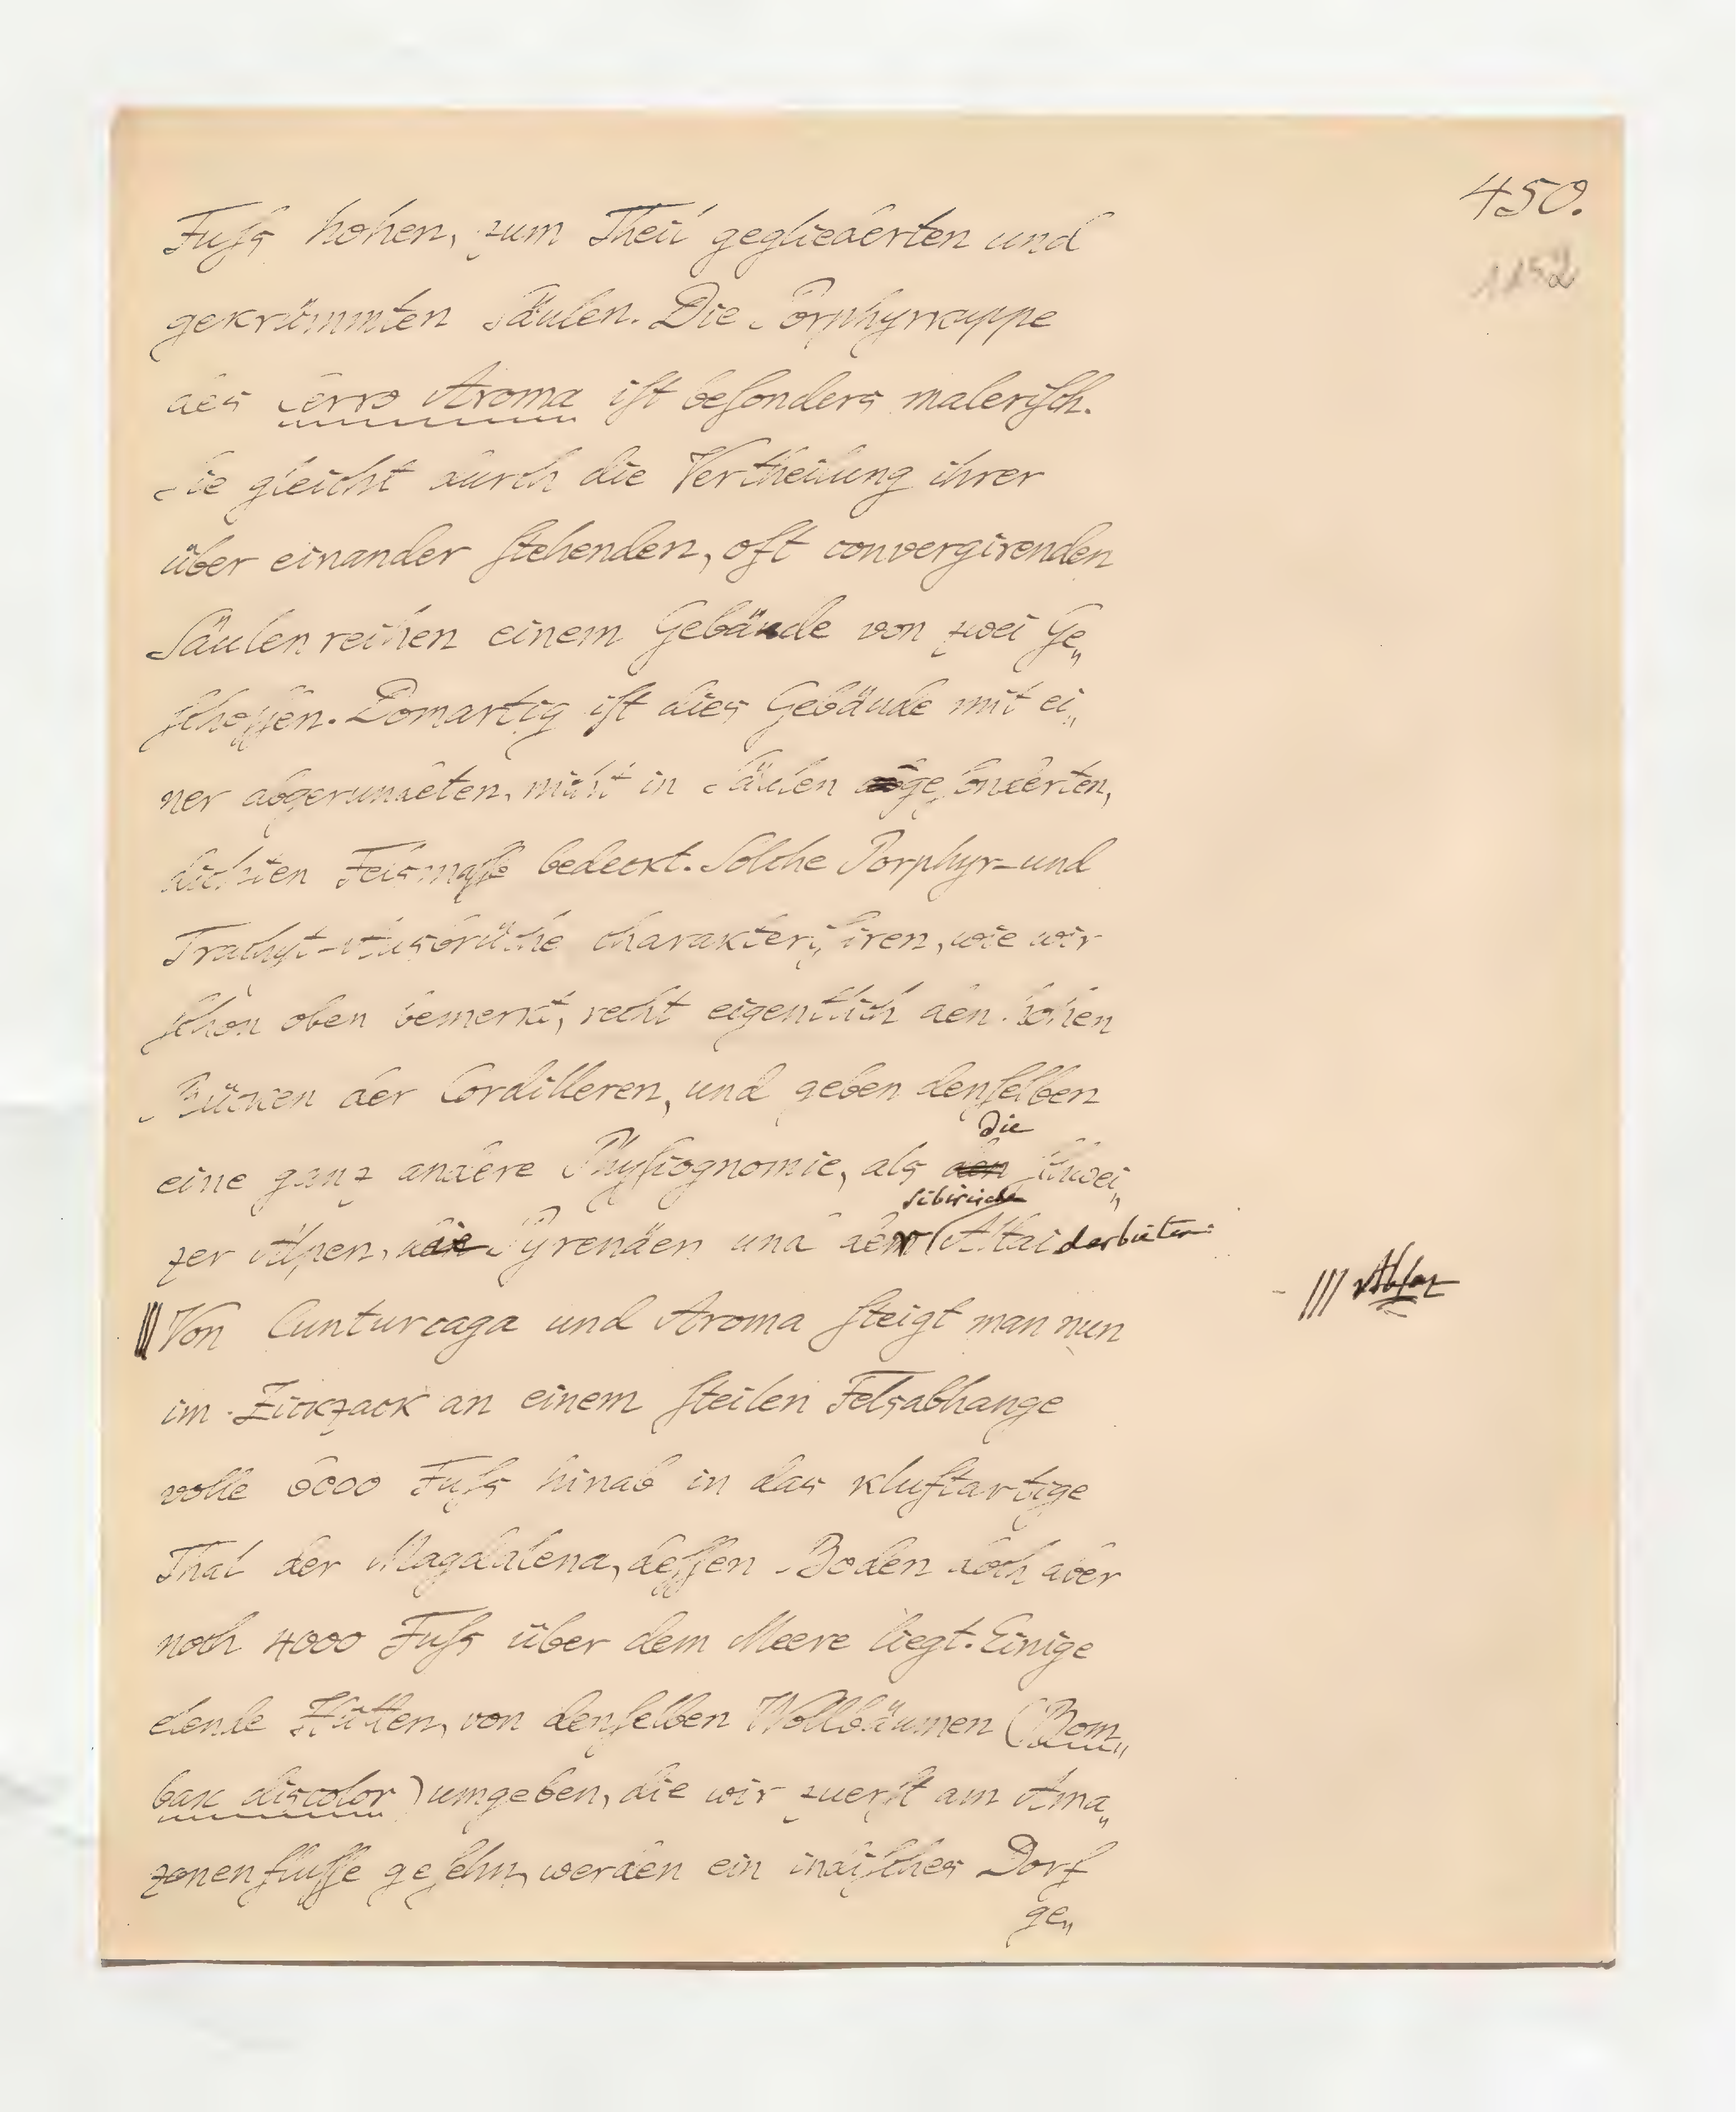 450.
1152
Fuſs hohen, zum Theil gegliederten und
gekrümmten Säulen. Die Porphyrkuppe
des Cerro Aroma iſt beſonders maleriſch.
Sie gleicht durch die Vertheilung ihrer
über einander ſtehenden, oft convergirenden
Säulenreihen einem Gebäude von zwei Ge„
ſchoſſen. Domartig iſt dies Gebäude mit ei„
ner abgerundeten, nicht in Säulen abgeſonderten,
dichten Felsmaſſe bedeckt. Solche Porphyr- und
Trachyt-Ausbrüche charakteriſiren, wie wir
ſchon oben bemerkt, recht eigentlich den hohen
Rücken der Cordilleren, und geben denſelben
die
eine ganz andere Phyſiognomie, als den Schwei„
sibirische
zer Alpen, die Pyrenäen und der Altai darbieten.
||| Absaz
Von Cunturcaga und Aroma ſteigt man nun
im Zickzack an einem ſteilen Felsabhange
volle 6000 Fuſs hinab in das kluftartige
Thal der Magdalena, deſſen Boden doch aber
noch 4000 Fuſs über dem Meere liegt. Einige
elende Hütten, von denſelben Wollbäumen (Bom„
bax discolor) umgeben, die wir zuerſt am Ama„
zonenfluſſe geſehn, werden ein indiſches Dorf
ge„